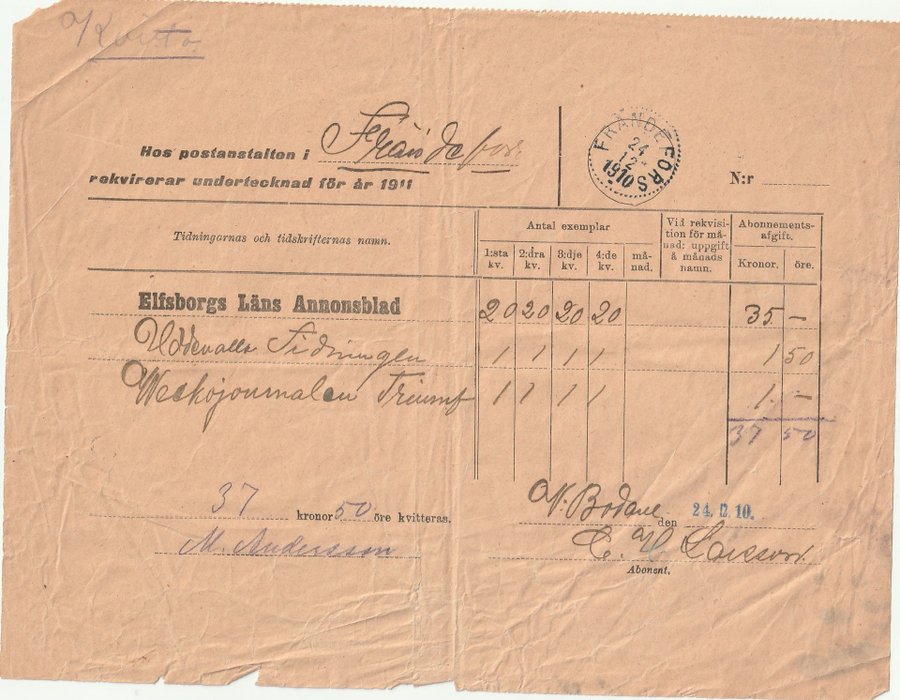 Konto
Hos postanstalten i Frändefors.
rekvirerar undertecknad för år 1911
FRÄNDEFORS
24
12
1910
N:r
Tidningarnas och tidskrifternas namn.
Antal exemplar
1:sta kv. 2:dra kv. 3:dje kv. 4:de kv. må-nad.
Vid rekvisi-
tion för må-
nad: uppgift
å månads
namn.
Abonnements-
afgift.
Kronor. öre.
Elfsborgs Läns Annonsblad 20 20 20 20 35 —
Uddevalla Tidningen 1 1 1 1 1 50
Weckojournalen Triumf 1 1 1 1 1. —
37 50
37 kronor 50 öre kvitteras.
M. Andersson
N. Bodane den 24. 12. 10.
C. H. Larsson.
Abonent.